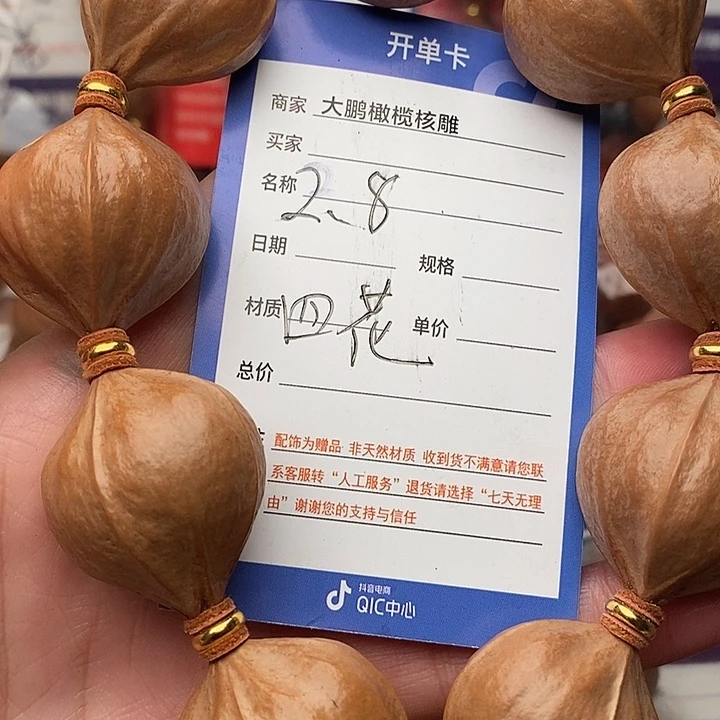 开单卡
商家 大鹏橄榄核雕
买家
名称 2、8
日期 规格
材质 四花 单价
总价
配饰为赠品 非天然材质 收到货不满意请您联
系客服转“人工服务”退货请选择“七天无理
由”谢谢您的支持与信任
抖音电商
QIC中心